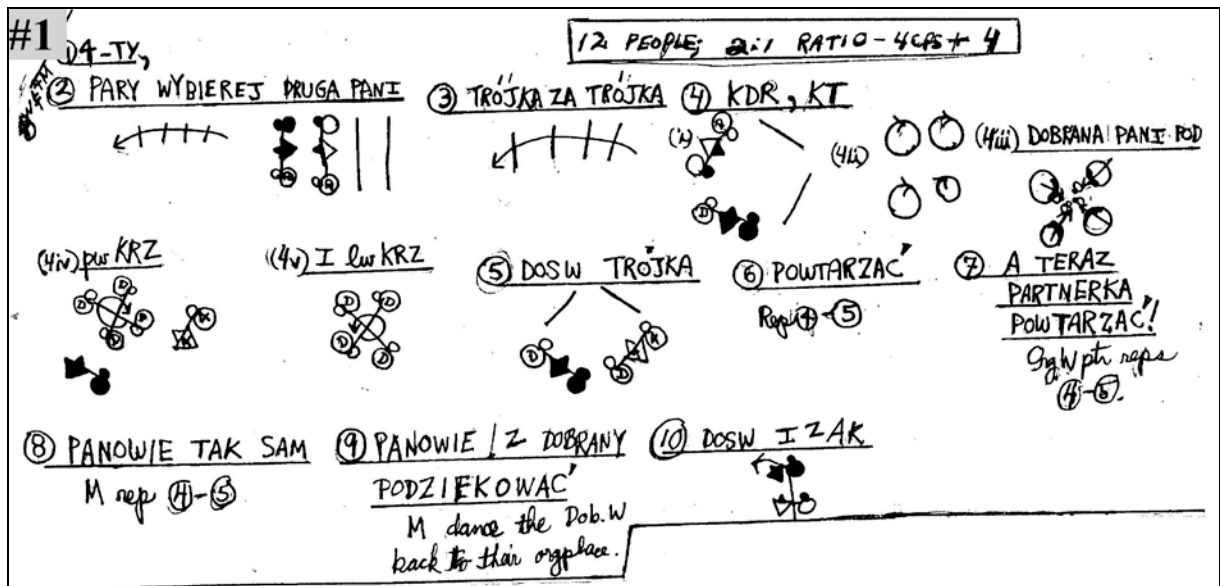 #1
D4-TY,
12 PEOPLE; 2:1 RATIO - 4 CPS + 4
② PARY WYBIEREJ DRUGA PANI
③ TRÓJKA ZA TRÓJKA
④ KDR, KT
(4ii)
(4iii) DOBRANA PANI POD
(4iv) pw KRZ
(4v) I lw KRZ
⑤ DOSW TRÓJKA
⑥ POWTARZAĆ
Rep ④-⑤
⑦ A TERAZ
PARTNERKA
POWTARZAĆ!
Org W ptr reps
④-⑤.
⑧ PANOWIE TAK SAM
M rep ④-⑤
⑨ PANOWIE / Z DOBRANY
PODZIEKOWAĆ
M dance the Dob. W
back to their org place.
⑩ DOSW I ZAK